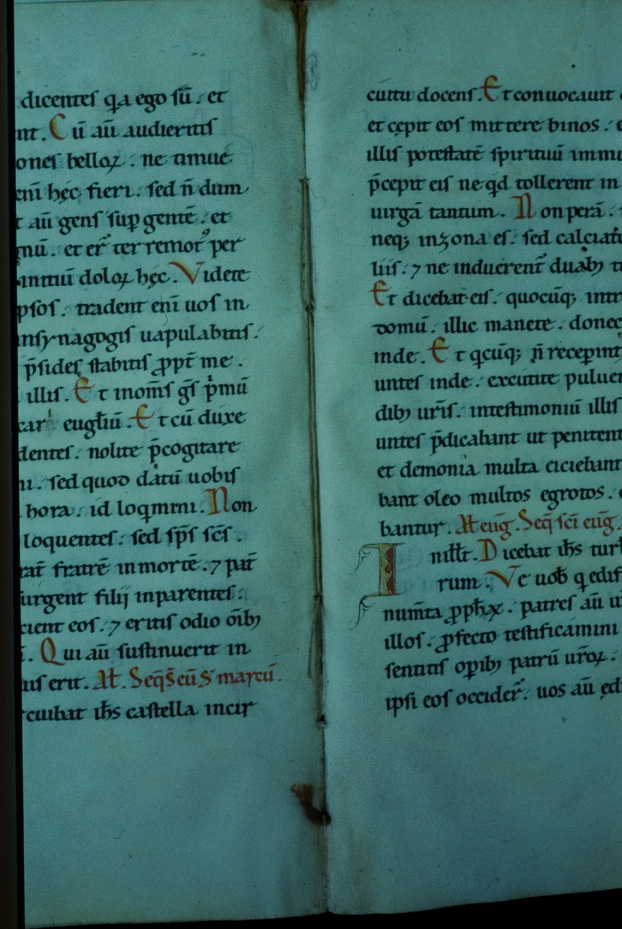 dicentes q̄a ego sū. et
nt. Cū aū audieritis
ones belloꝝ. ne timue
eni hęc fieri. sed n̄ dum
t aū gens sup gentē. et
gnū. et er̄ terremotꝰ per
initiū doloꝝ hęc. Videte
psos. tradent eni uos in
insynagogis uapulabitis.
p̄sides stabitis ꝓpt̄ me.
illis. Et inom̄s ḡs p̄mū
car eugl̄iū. Et cū duxe
dentes. nolite p̄cogitare
ni. sed quod datū uobis
hora. id loq̄mini. Non
loquentes. sed sp̄s sc̄s.
rat̄ fratrē inmortē. ⁊ pat̄
urgent filij inparentes.
cient eos. ⁊ eritis odio oīb;
. Qui aū sustinuerit in
us erit. Al̄. Seq̄. s̄. eū. s̄. marcū.
rcuibat ih̄s castella incir
cuitu docens. Et conuocauit
et cępit eos mittere binos.
illis potestatē spirituū inmu
p̄cepit eis ne q̄d tollerent in
uirgā tantum. Non perā.
neq; inzona es. sed calciat
liis. ⁊ ne induerent̄ duab;
Et dicebat eis. quocūq; intr
domū. illic manete. donec
inde. Et q̄cūq; n̄ receperint
untes inde. excutite puluer
dib; ur̄is. intestimoniū illis
untes p̄dicabant ut penitent
et demonia multa eiciebant
bant oleo multos egrotos.
bantur. Al̄ euḡ. Seq̄ sc̄i euḡ.
Inill̄t. Dicebat ih̄s turb
rum. Ve uob̄ q̄ edif
num̄ta ꝓph̄ꝝ. patres aū u
illos. ꝓfecto testificamini
sentitis op̄ib; patrū ur̄oꝝ.
ipsi eos occider̄. uos aū ędi